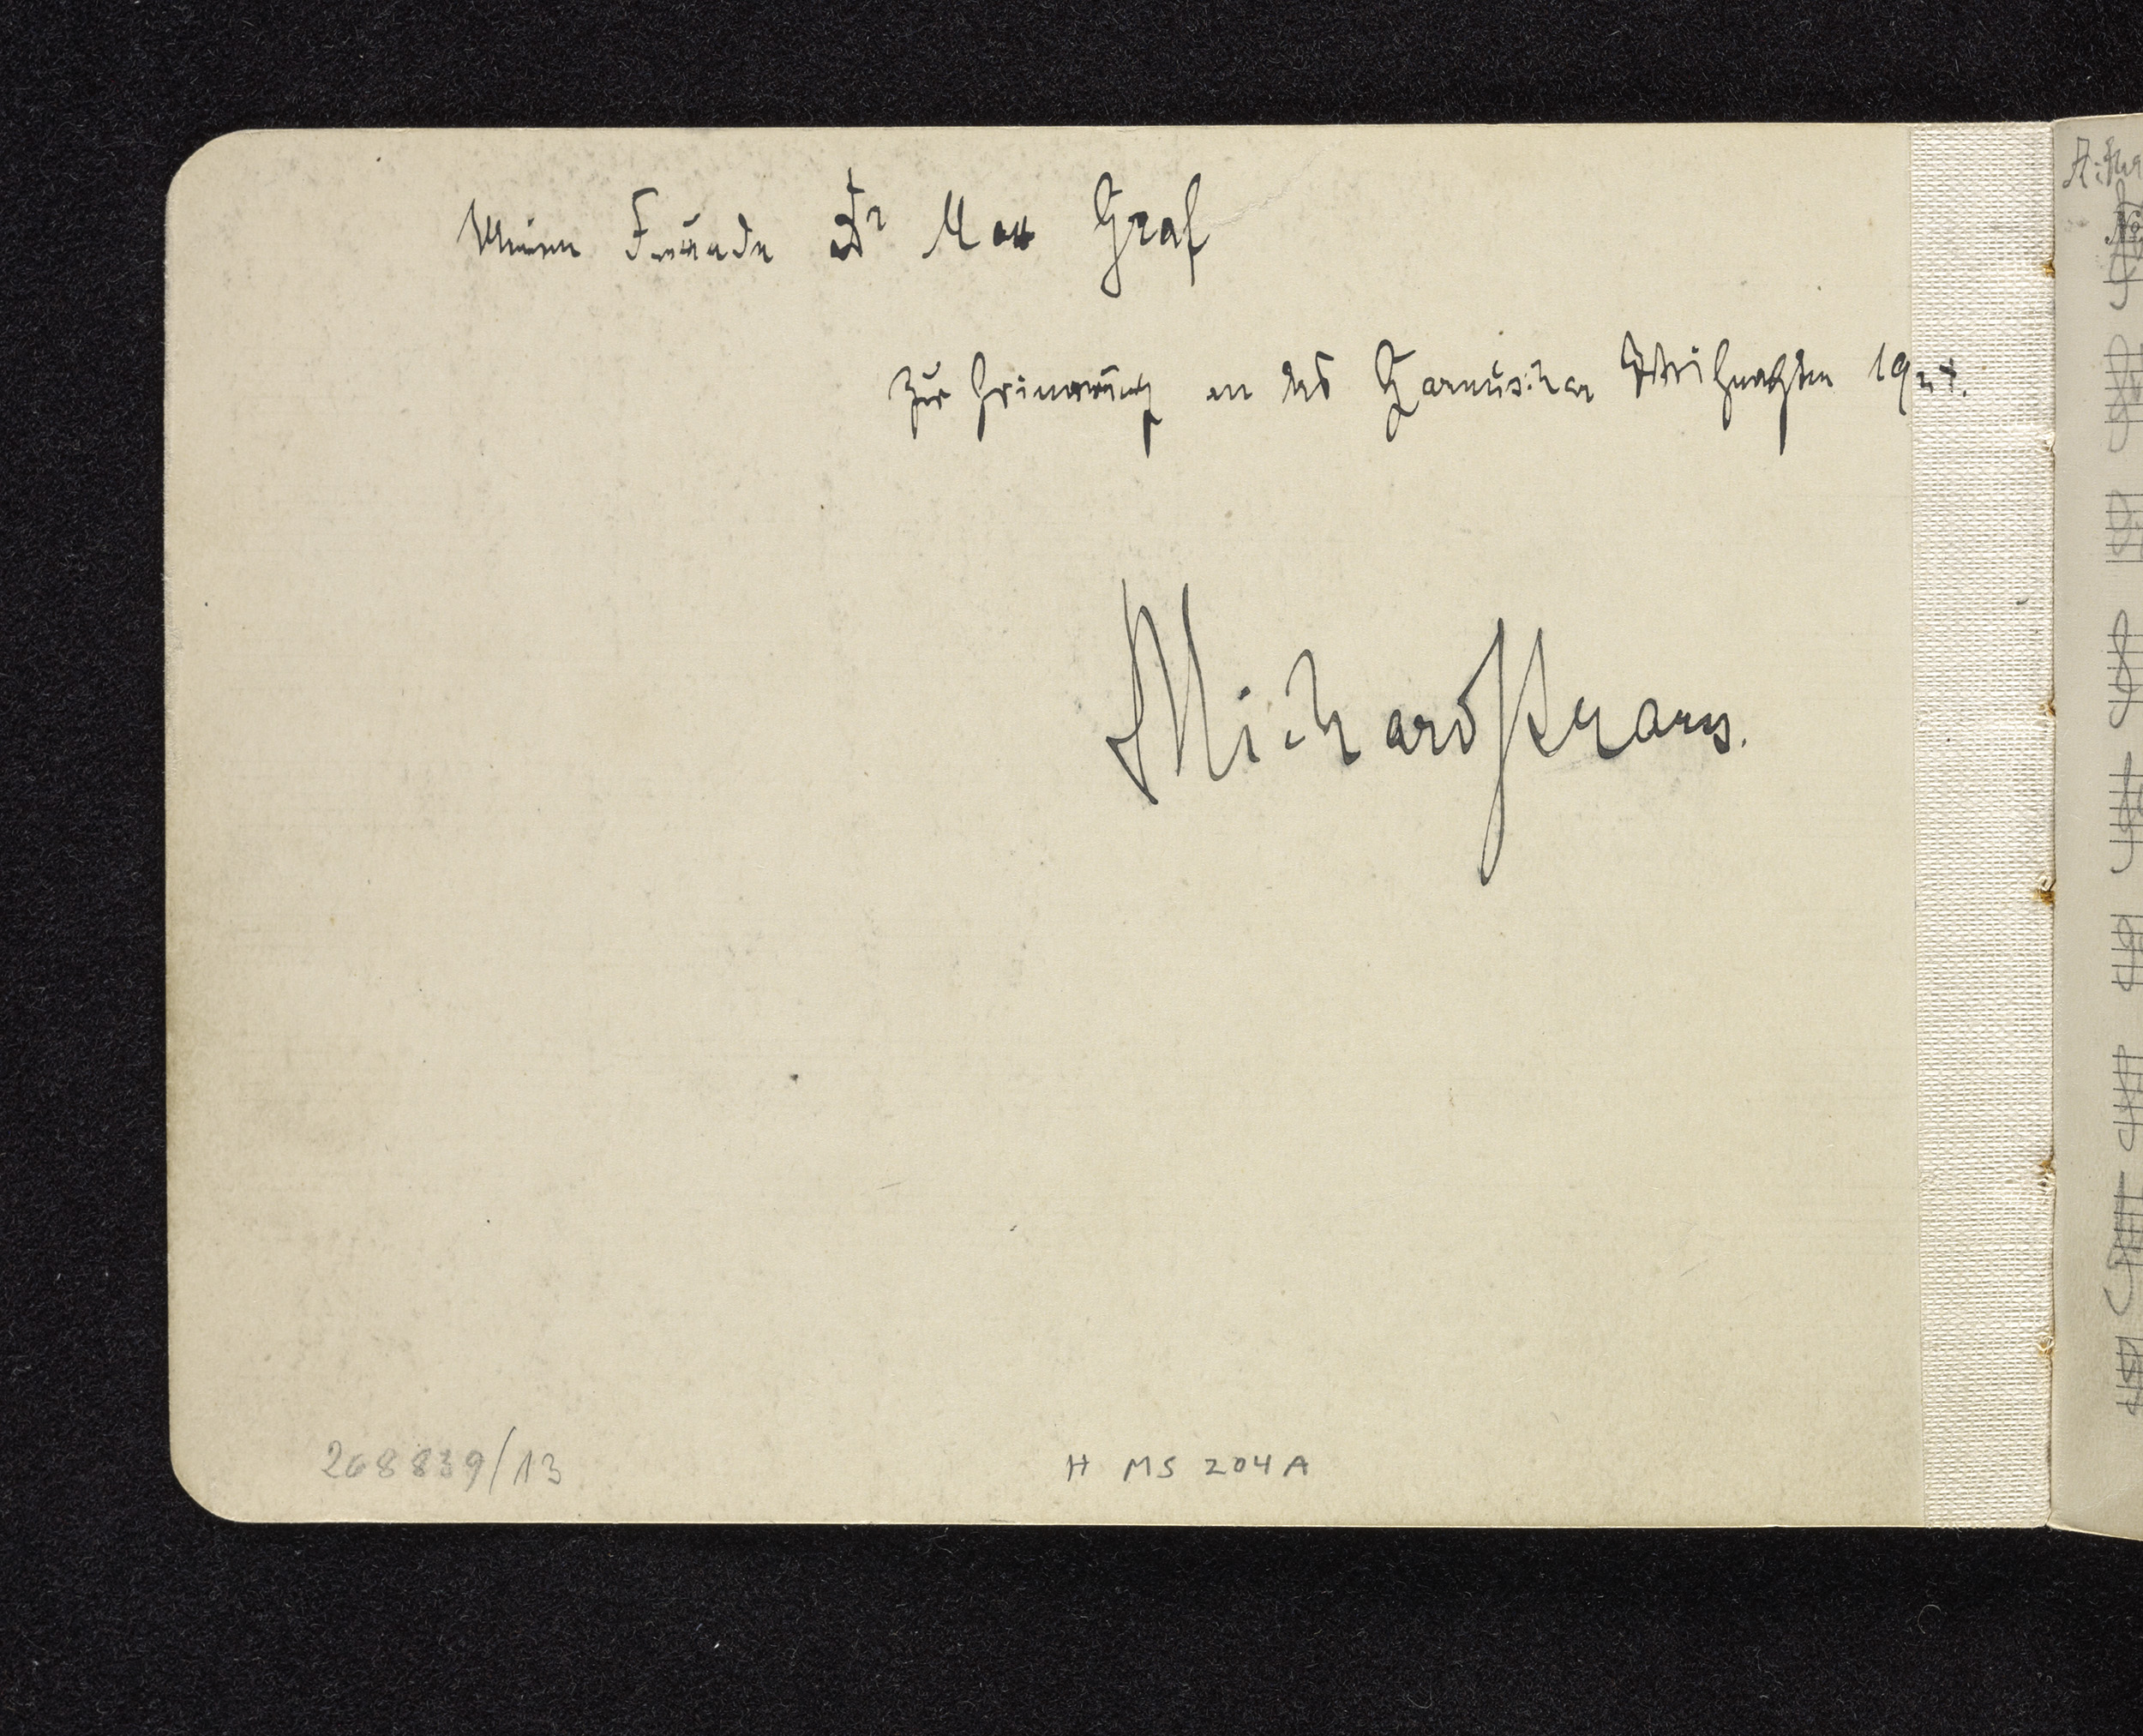 Meinem Freunde Dr Max Graf
zur Erinnerung an das Garmischer 1924.
Richard Strauss.
268839/13
H MS 204A